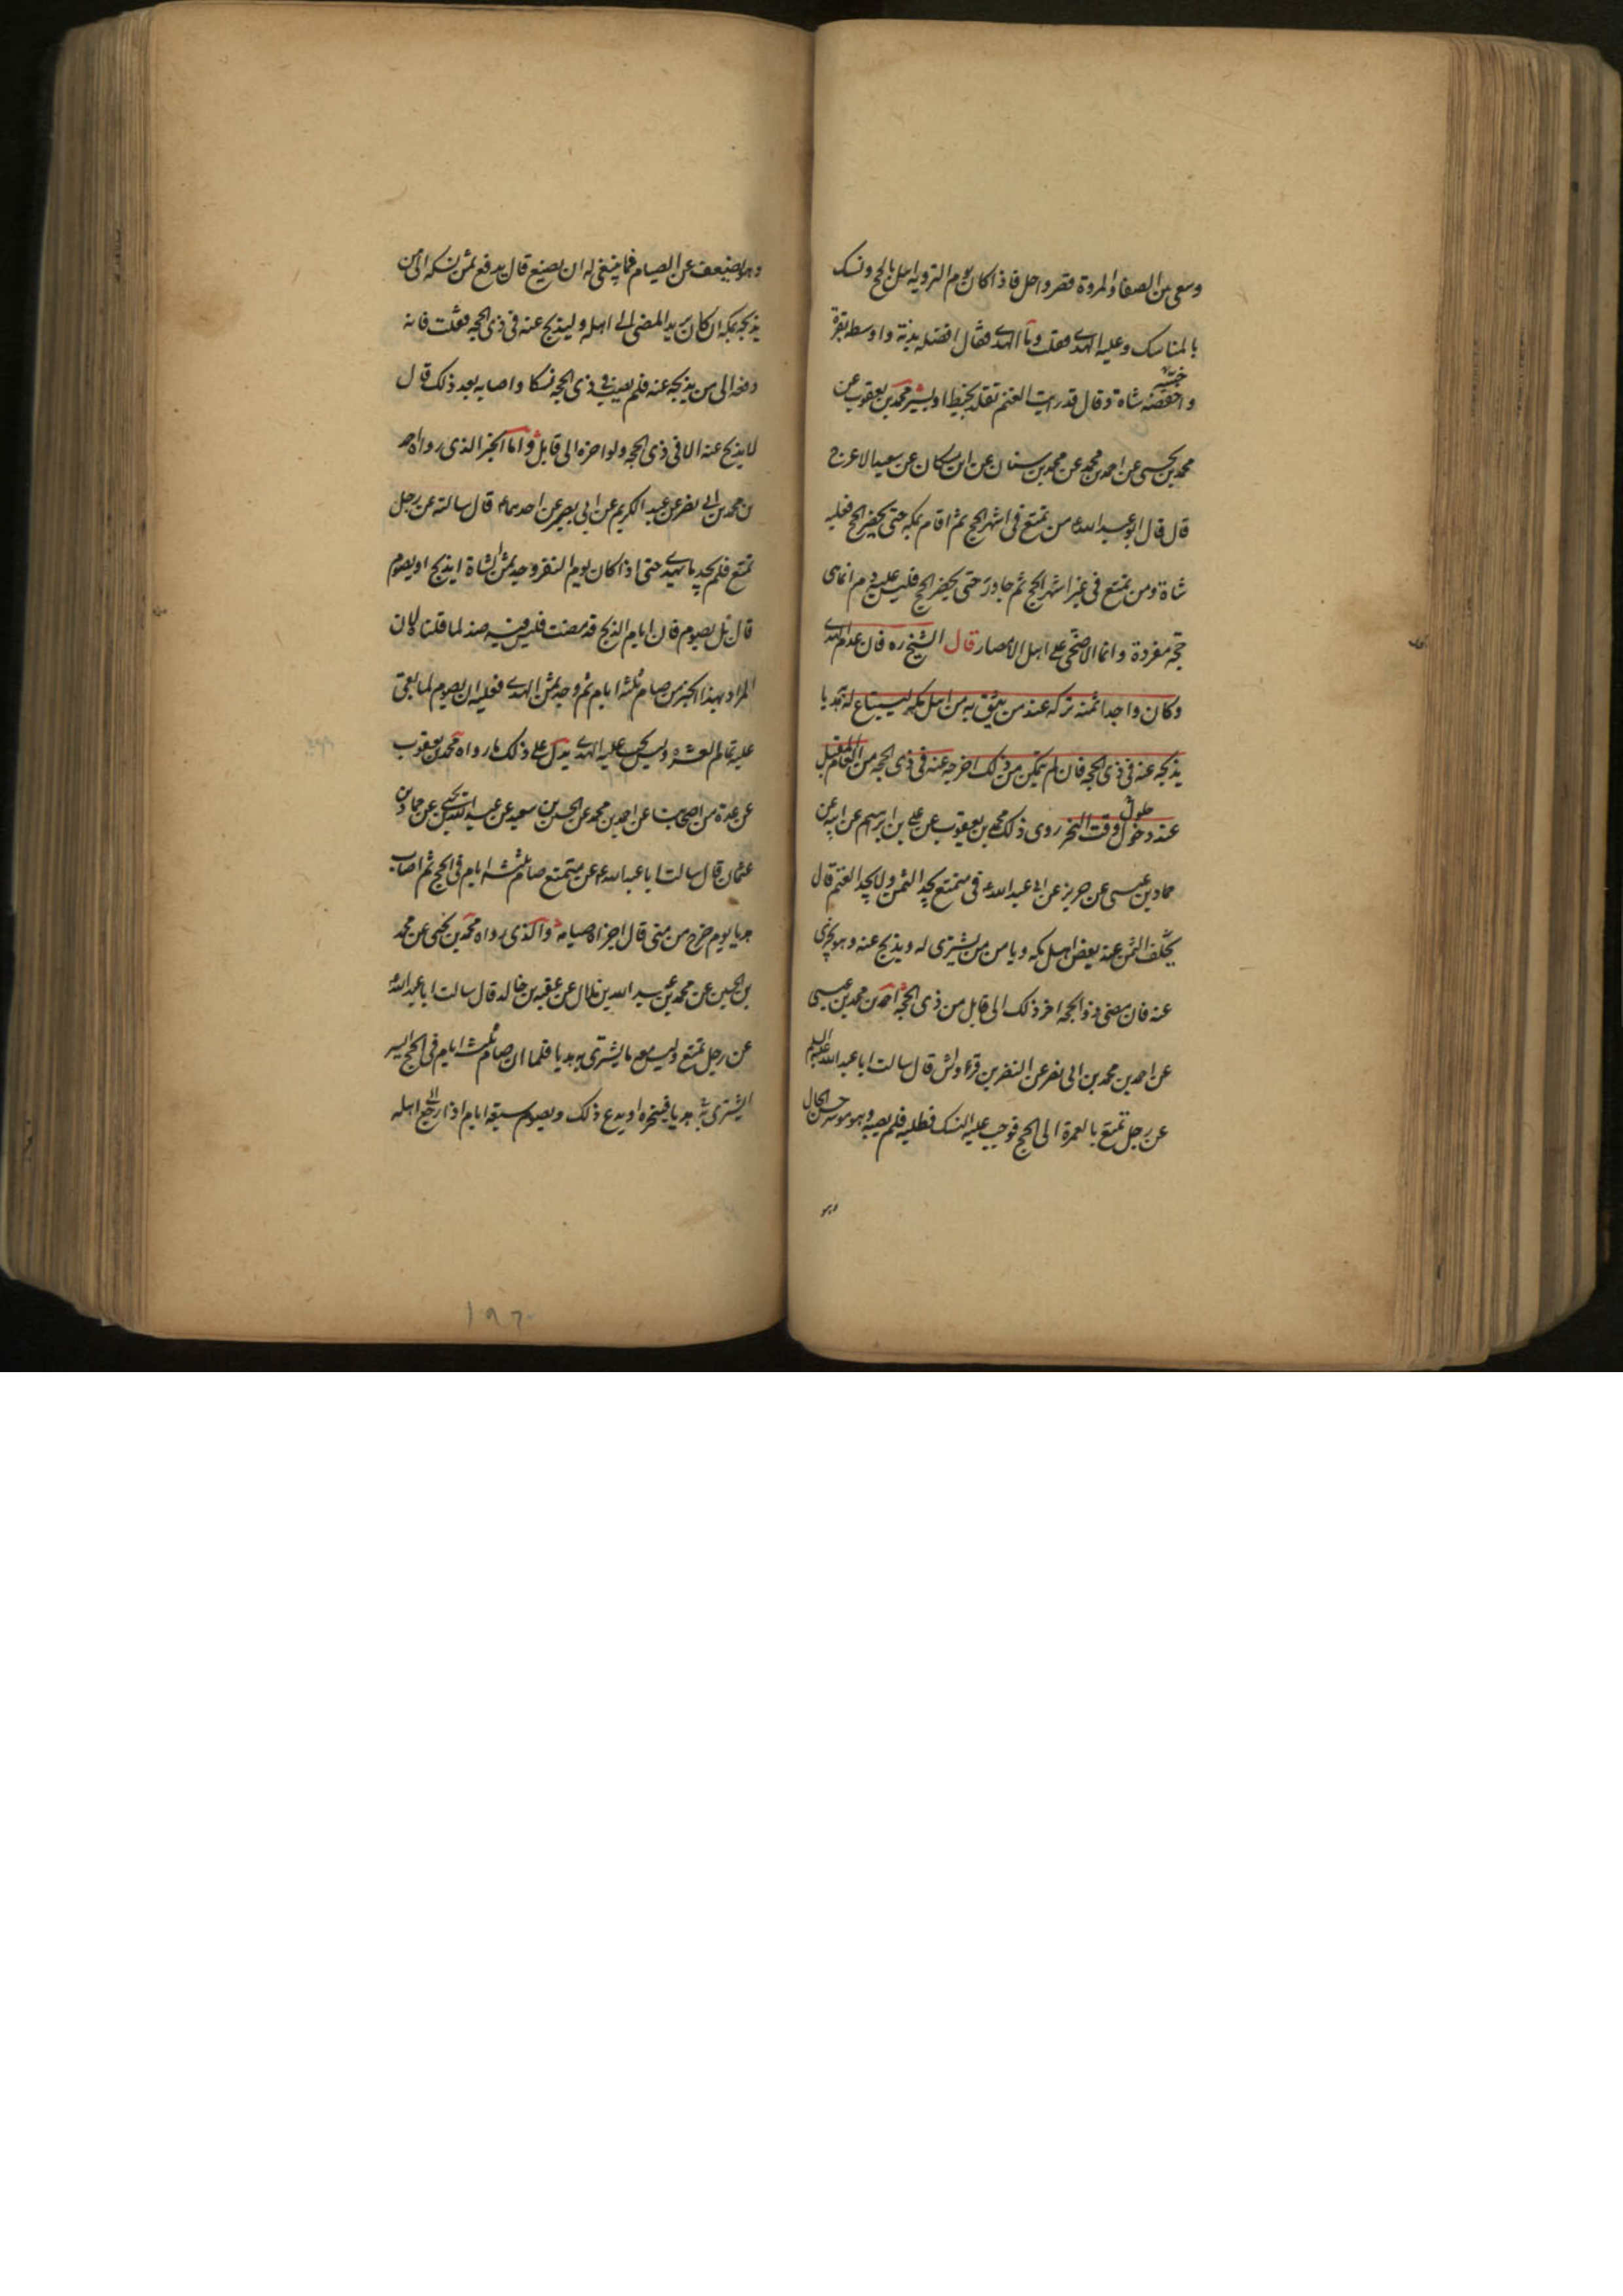 وسعى بين الصفا والمروة وقصر واحل فاذا كان يوم التروية اهل بالحج ونسك
بالمناسك وعليه الهدي فقلت وما الهدي فقال افضله بدنة واوسطه بقرة
واخفضه شاة وقال قد رايت الغنم تقلد بخيط او بسير محمد بن يعقوب عن
محمد بن يحيى عن احمد بن محمد عن محمد بن سنان عن ابن مسكان عن سعيد الاعرج
قال قال ابو عبد الله ع من تمتع في اشهر الحج ثم اقام بمكة حتى يحضر الحج فعليه
شاة ومن تمتع في غير اشهر الحج ثم جاور حتى يحضر الحج فليس عليه دم انما هي
حجة مفردة وانما الاضحى على اهل الامصار قال الشيخ ره فان عدم الهدي
وكان واجدا ثمنه تركه عند من يثق به من اهل مكة ليبتاع له هديا
يذبحه عنه في ذي الحجة فان لم يتمكن من ذلك اخرجه عنه في ذي الحجة من العام المقبل
عند دخول وقت النحر روى ذلك محمد بن يعقوب عن علي بن ابرهيم عن ابيه عن
حلول
حماد بن عيسى عن حريز عن ابي عبد الله ع في متمتع يجد الثمن ولا يجد الغنم قال
يخلف الثمن عند بعض اهل مكة ويامر من يشتري له ويذبح عنه وهو يجزي
عنه فان مضى ذو الحجة اخر ذلك الى قابل من ذي الحجة احمد بن محمد بن عيسى
عن احمد بن محمد بن ابي نصر عن النضر بن قرواش قال سالت ابا عبد الله عليه السلم
عن رجل تمتع بالعمرة الى الحج فوجب عليه النسك فطلبه فلم يصبه وهو موسر حسن الحال
وهو
وهو يضعف عن الصيام فما ينبغي له ان يصنع قال يدفع ثمن نسكه الى من
يذبحه بمكة ان كان يريد المضي الى اهله وليذبح عنه في ذي الحجة فقلت فانه
دفعه الى من يذبحه عنه فلم يصب في ذي الحجة نسكا واصابه بعد ذلك قال
لا يذبح عنه الا في ذي الحجة ولو اخره الى قابل واما الخبر الذي رواه احمد
بن محمد بن ابي نصر عن عبد الكريم عن ابي بصير عن احدهما ع قال سالته عن رجل
تمتع فلم يجد ما يهدي حتى اذا كان يوم النفر وجد ثمن شاة ايذبح او يصوم
قال بل يصوم فان ايام الذبح قد مضت فليس فيه ضد لما قلناه لان
المراد بهذا الخبر من صام ثلثة ايام ثم وجد ثمن الهدي فعليه ان يصوم لما بقي
عليه تمام العشرة وليس يجب عليه الهدي يدل على ذلك ما رواه محمد بن يعقوب
عن عدة من اصحابنا عن احمد بن محمد عن الحسين بن سعيد عن عبد الله بن يحيى عن حماد بن
عثمان قال سالت ابا عبد الله ع عن متمتع صام ثلثة ايام في الحج ثم اصاب
هديا يوم خرج من منى قال اجزاه صيامه والذي رواه محمد بن يحيى عن محمد
بن الحسين عن محمد بن عبد الله بن هلال عن عقبة بن خالد قال سالت ابا عبد الله
عن رجل تمتع وليس معه ما يشتري به هديا فلما ان صام ثلثة ايام في الحج ايسر
ايشتري به هديا فينحره او يدع ذلك ويصوم سبعة ايام اذا رجع الى اهله